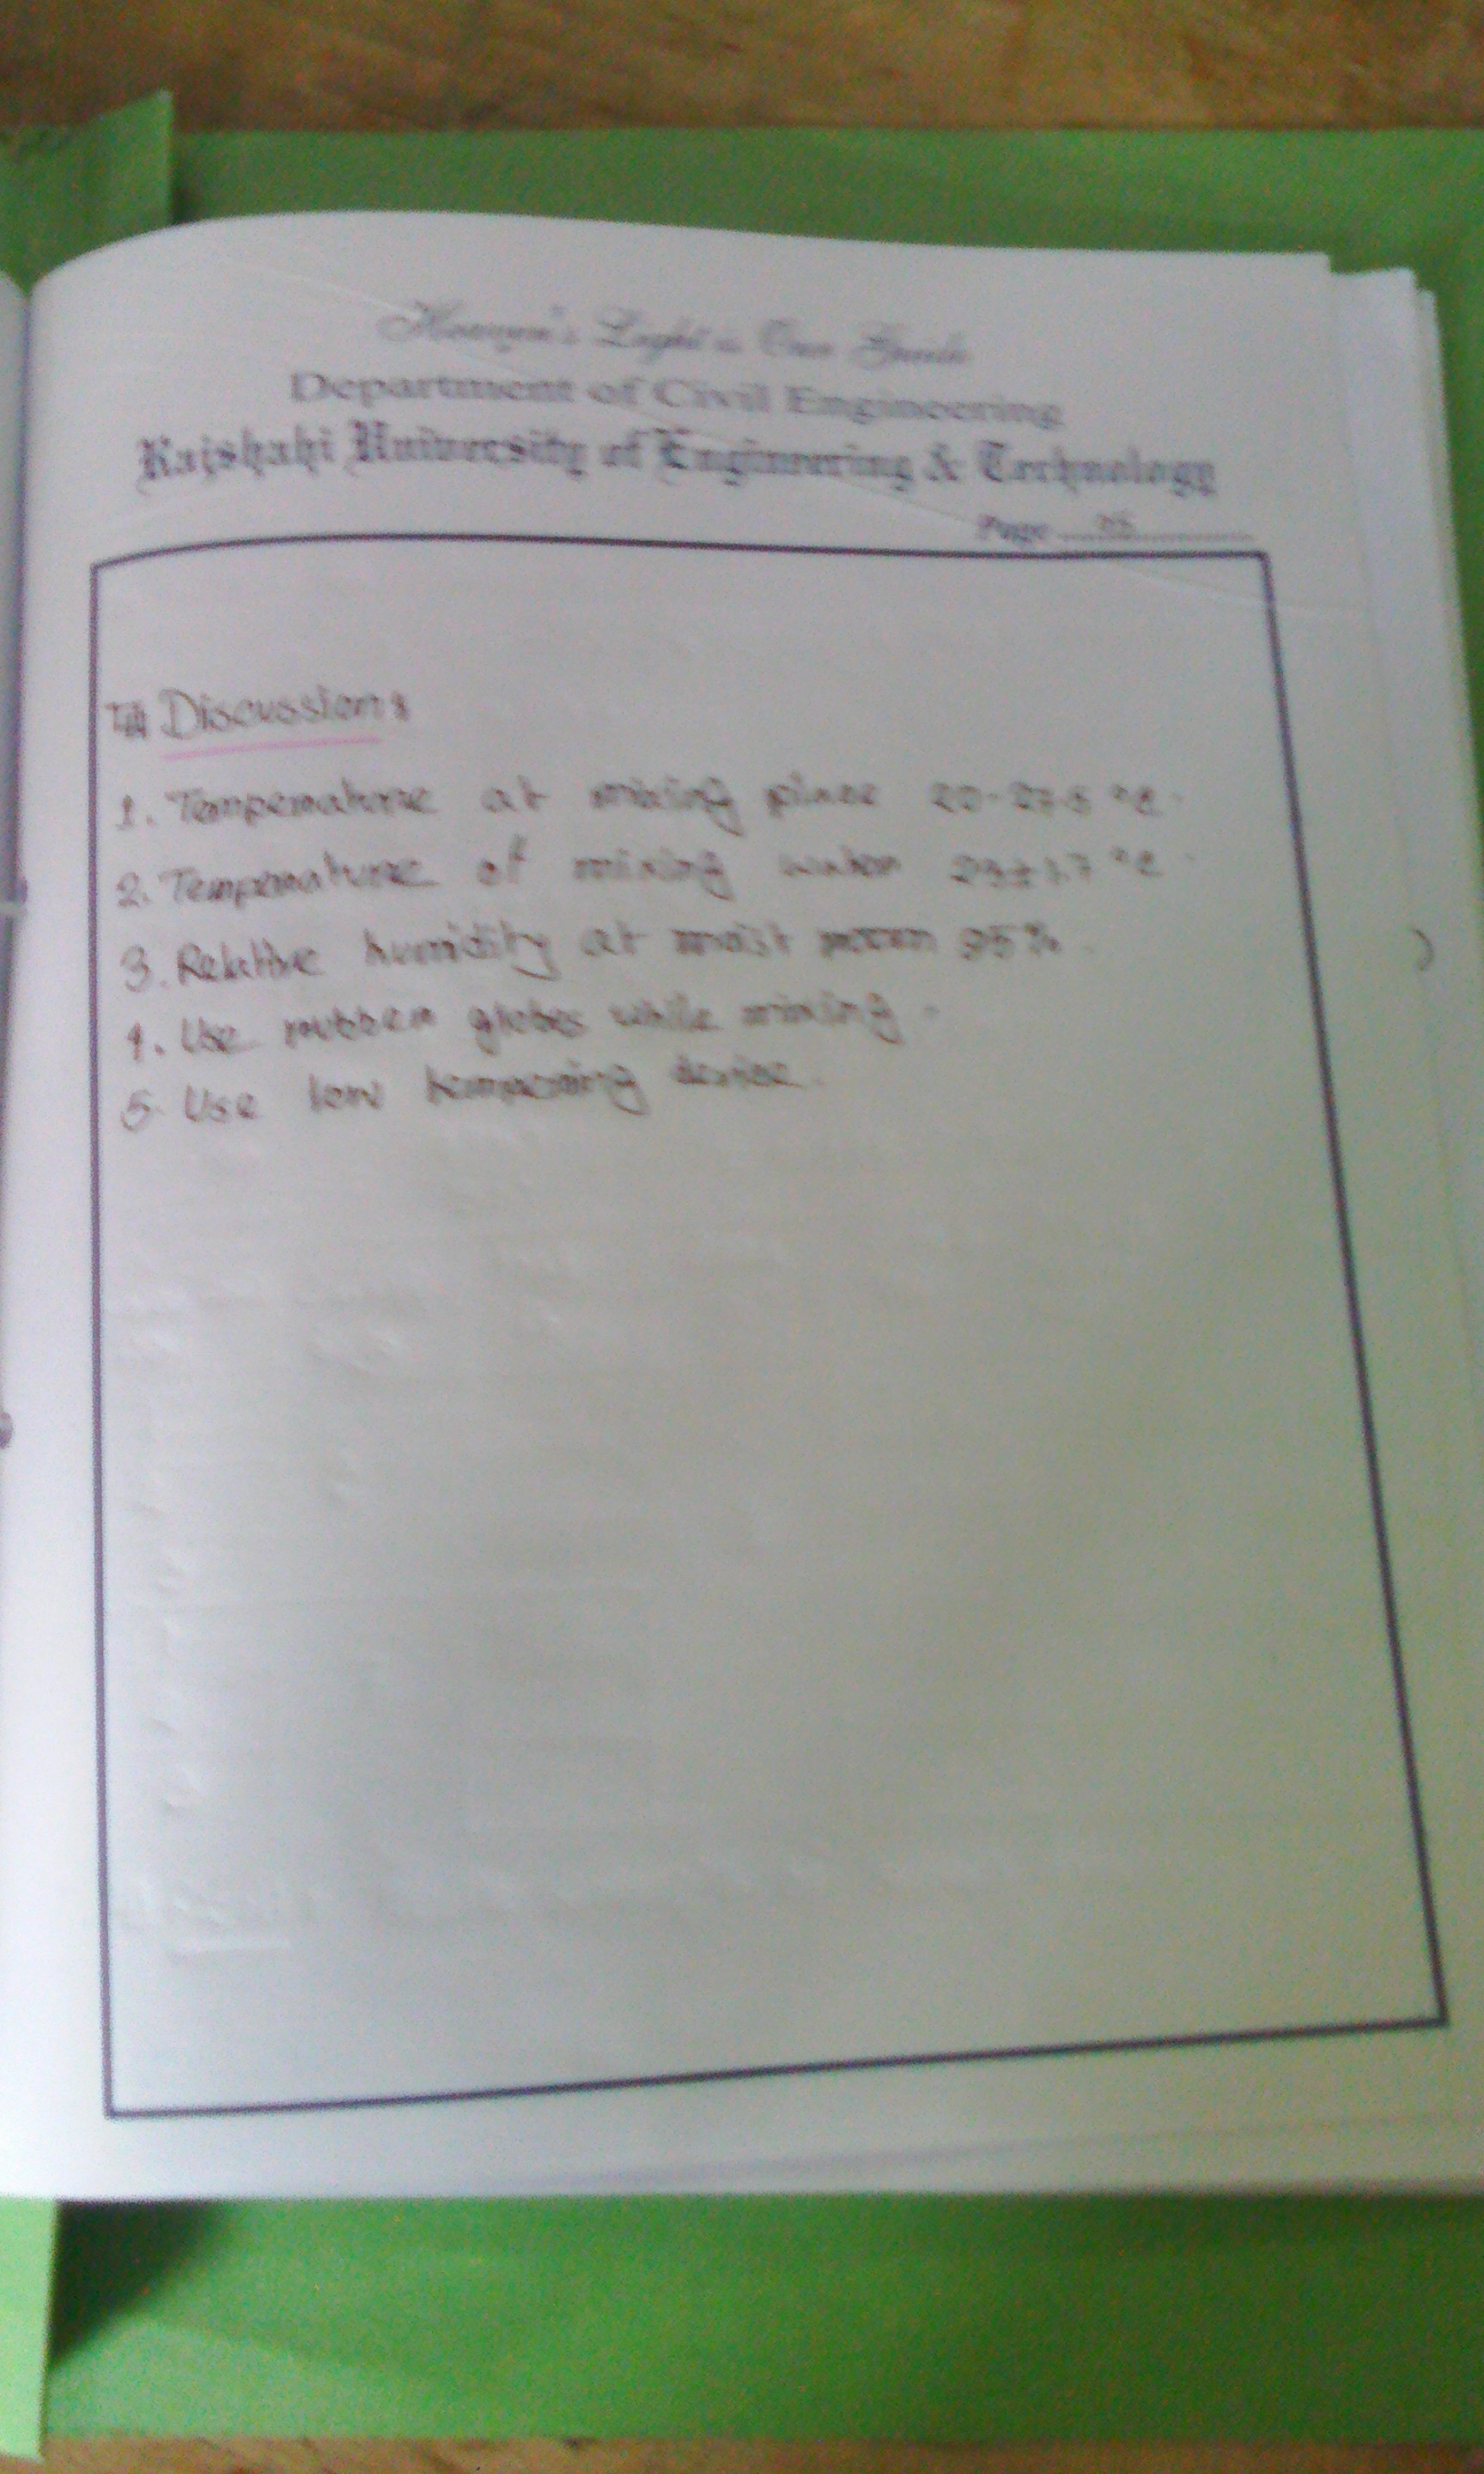 Heaven's Light is Our Guide
Department of Civil Engineering
Rajshahi University of Engineering & Technology
Page
Discussion:
1. Temperature at mixing place 20-27.5 °c.
2. Temperature of mixing water 23±1.7 °c.
3. Relative humidity at moist room 95%.
4. Use rubber globes while mixing.
5. Use low tempering device.